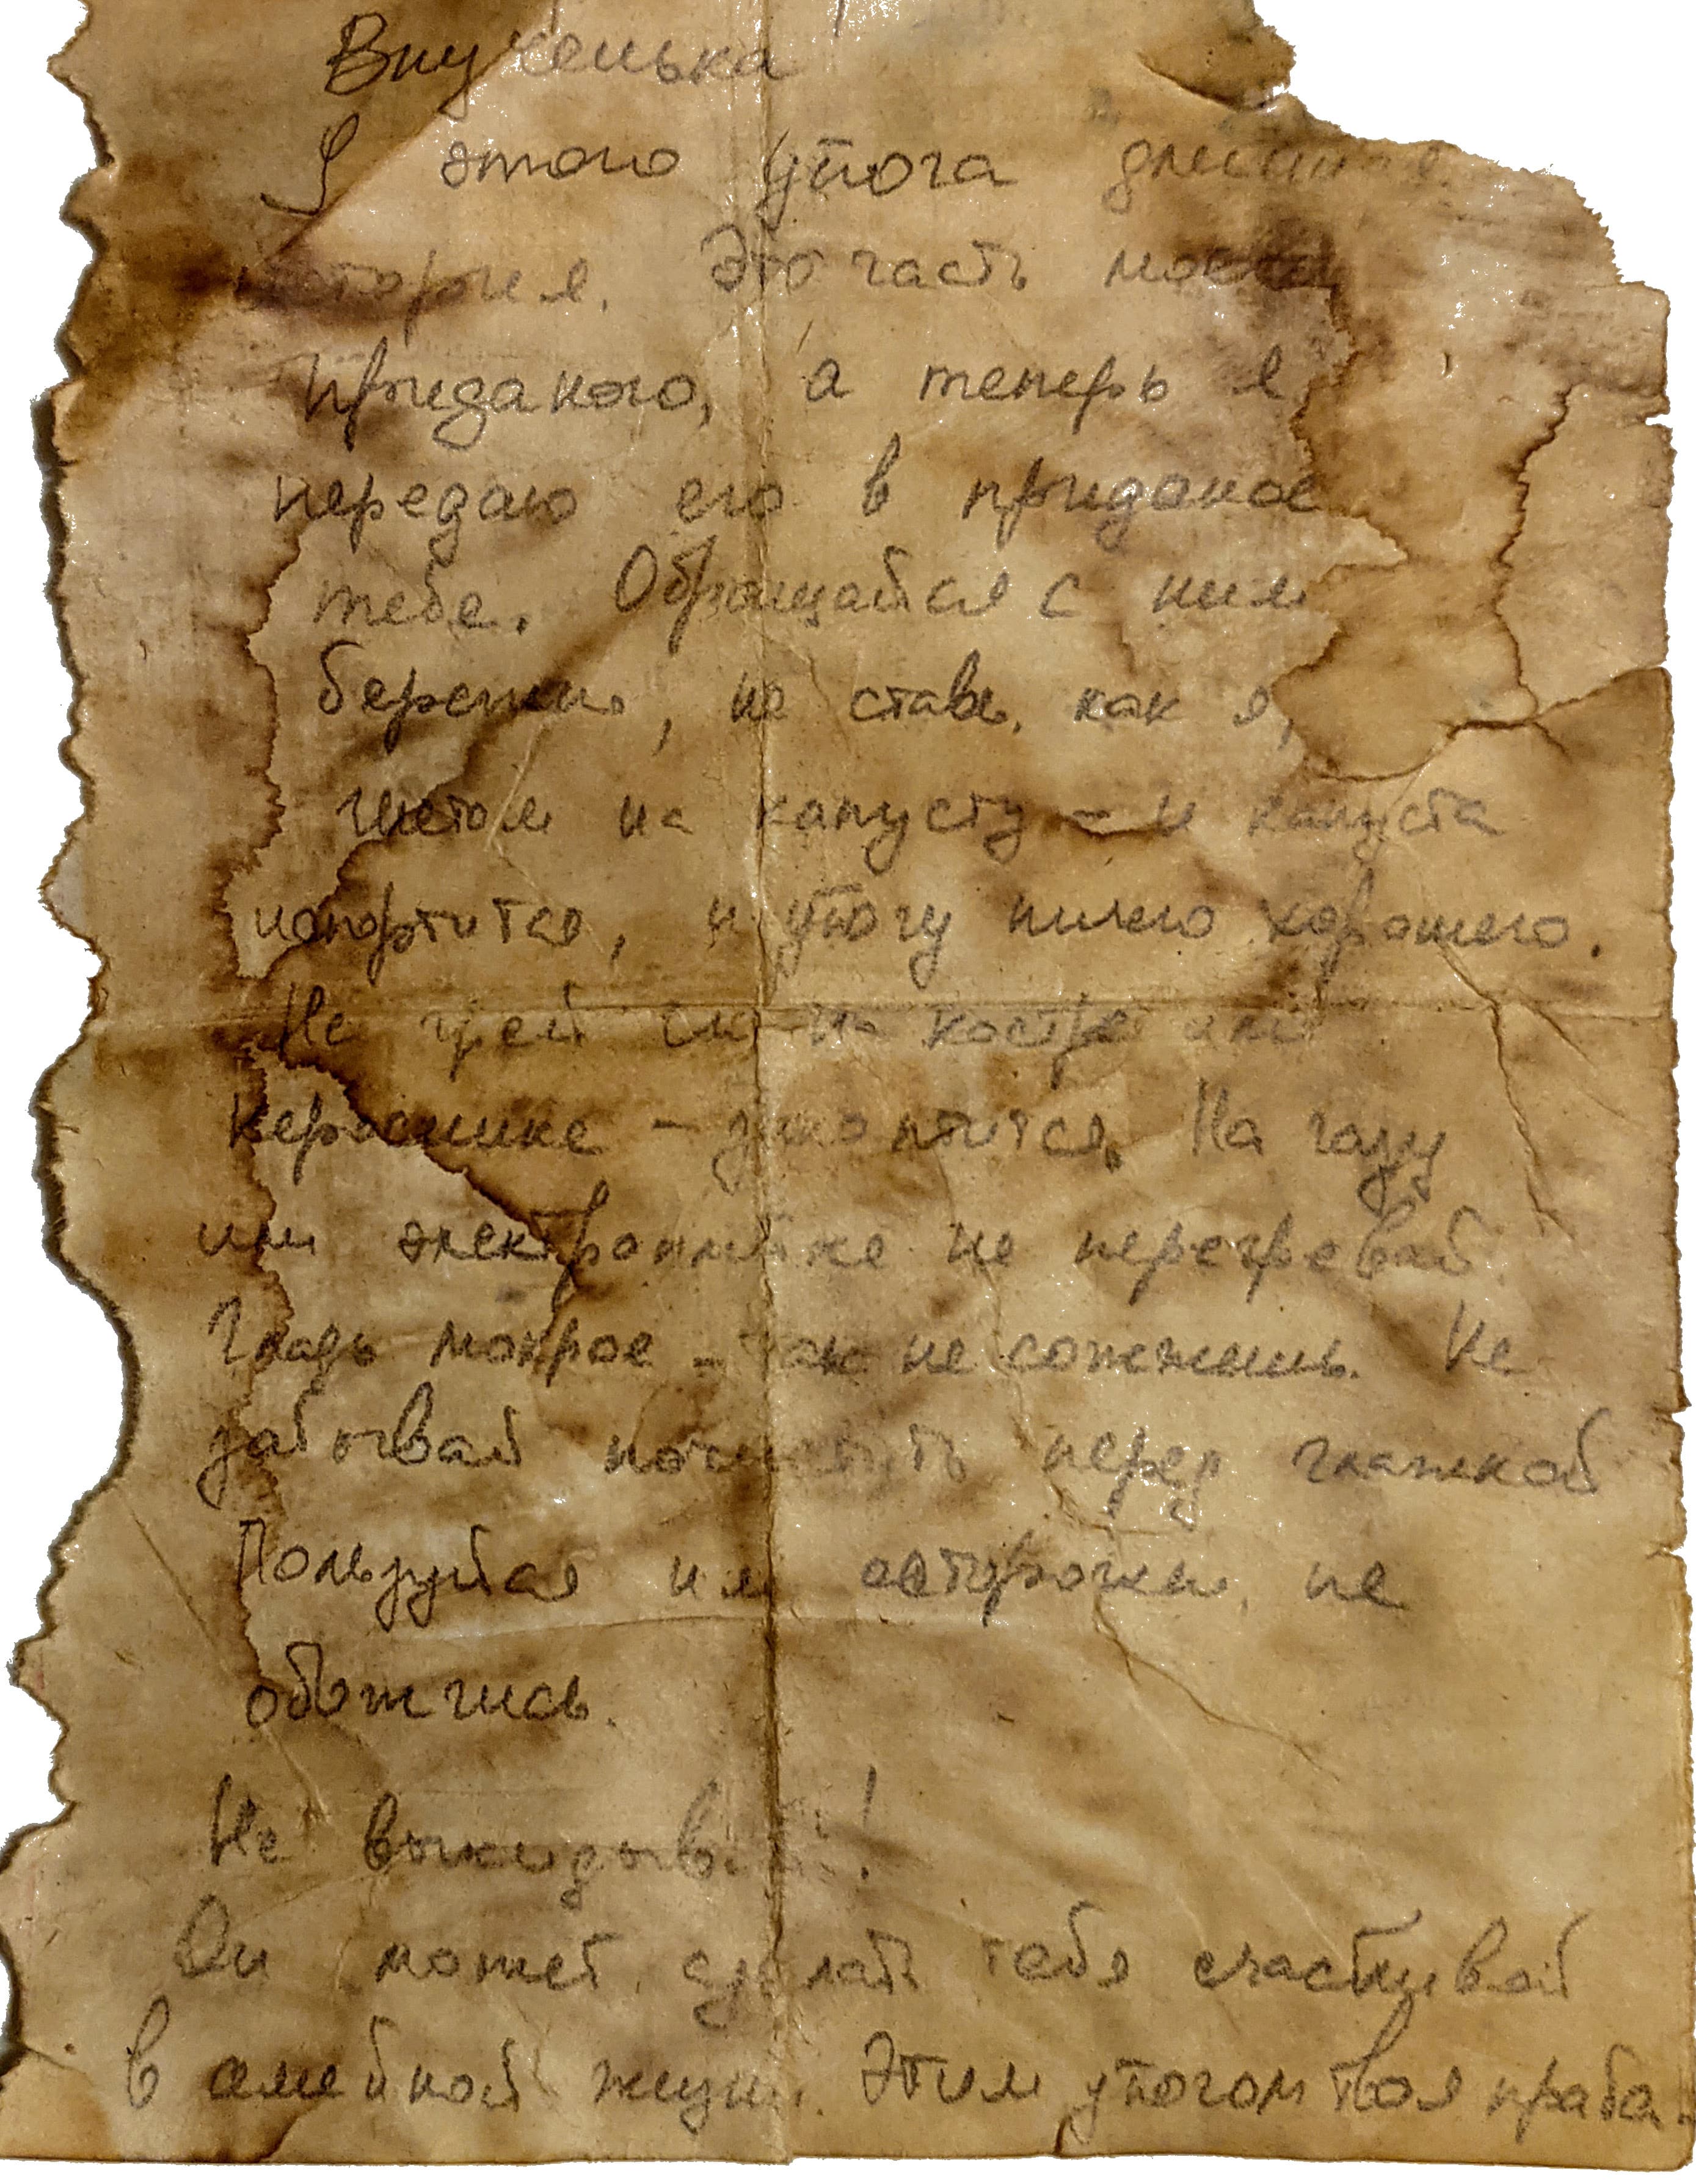 Внученька
У этого утюга длинная
история. Это часть моего
приданого, а теперь я
передаю его в приданое
тебе. Обращайся с ним
бережно, не ставь, как я,
гнетом на капусту - и капуста
испортится, и утюгу ничего хорошего.
Не грей его на костре или
керосинке - закоптится. На газу
или электроплитке не перегревай.
Гладь мокрое - так не сожжешь. Не
забывай почистить перед глажкой
Пользуйся им осторожно, не
обожгись.
Не выкидывай!
Он может сделать тебя счастливой
в семейной жизни. Этим утюгом твоя праба-